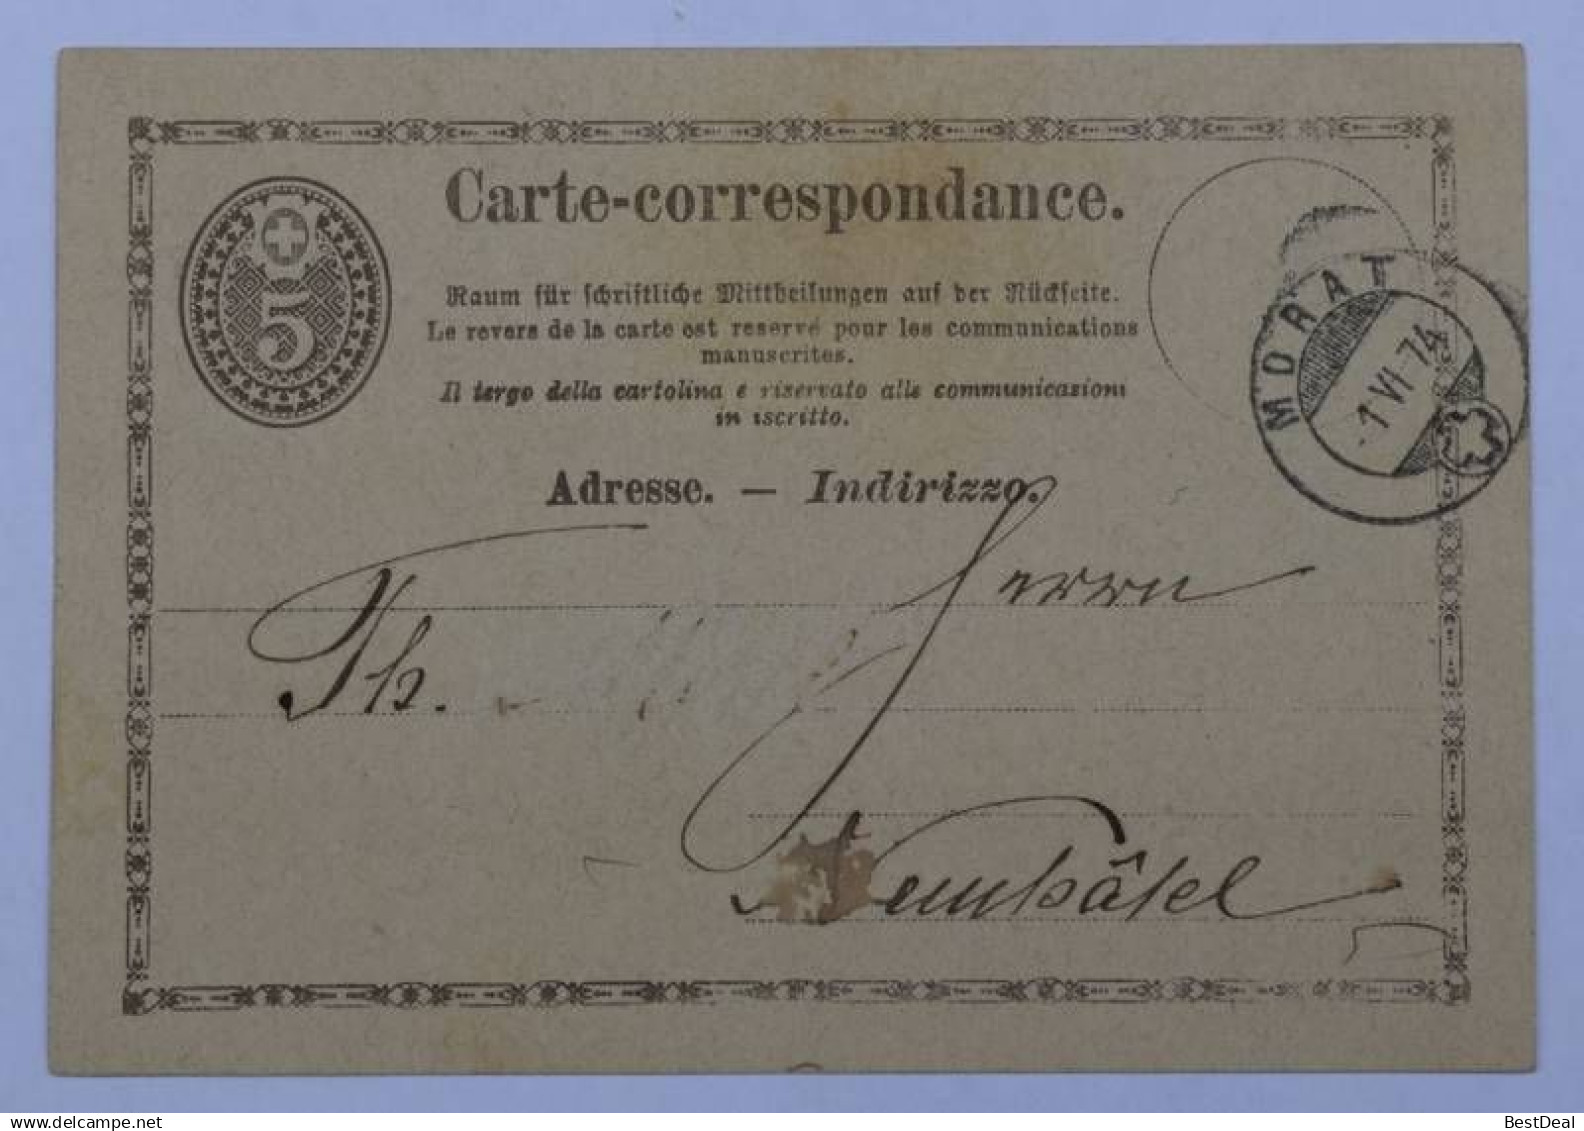 Carte-correspondance.
5
Raum für schriftliche Mittheilungen auf der Rückseite.
Le revers de la carte est reservé pour les communications
manuscrites.
Il tergo della cartolina è riservato alle communicazioni
in iscritto.
MORAT
1 VI 74
Adresse. — Indirizzo.
Herrn
Th.
Neuchâtel
BestDeal